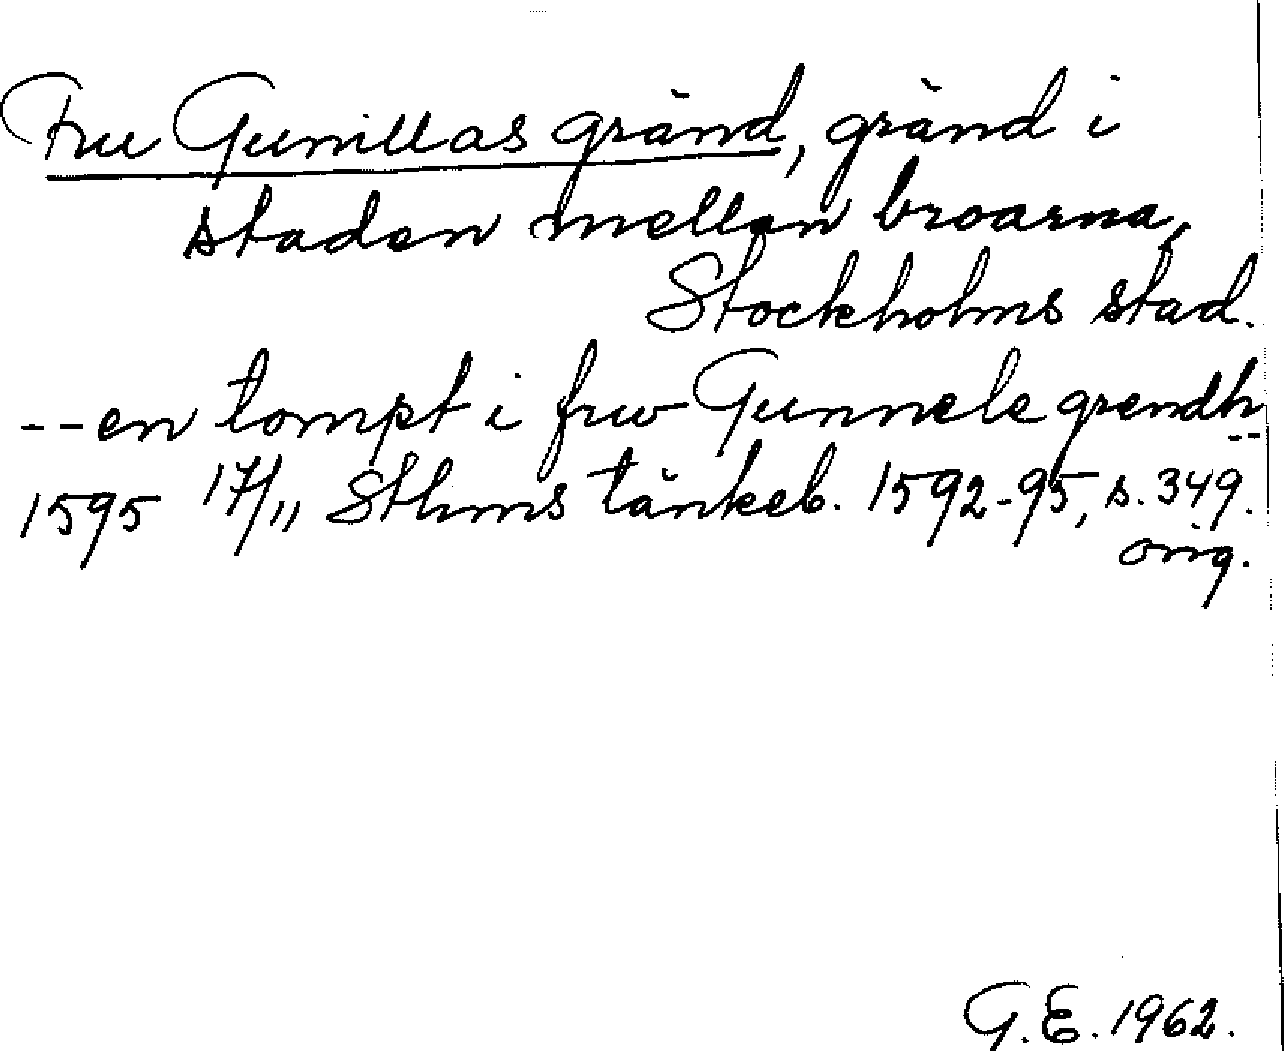 Fru Gunillas gränd, gränd i
staden mellan broarna,
Stockholms stad.
--en tompt i fruw Gunnele grendh --
1595 17/11 Sthms tänkeb. 1592-95, s. 349.
orig.
G.E. 1962.